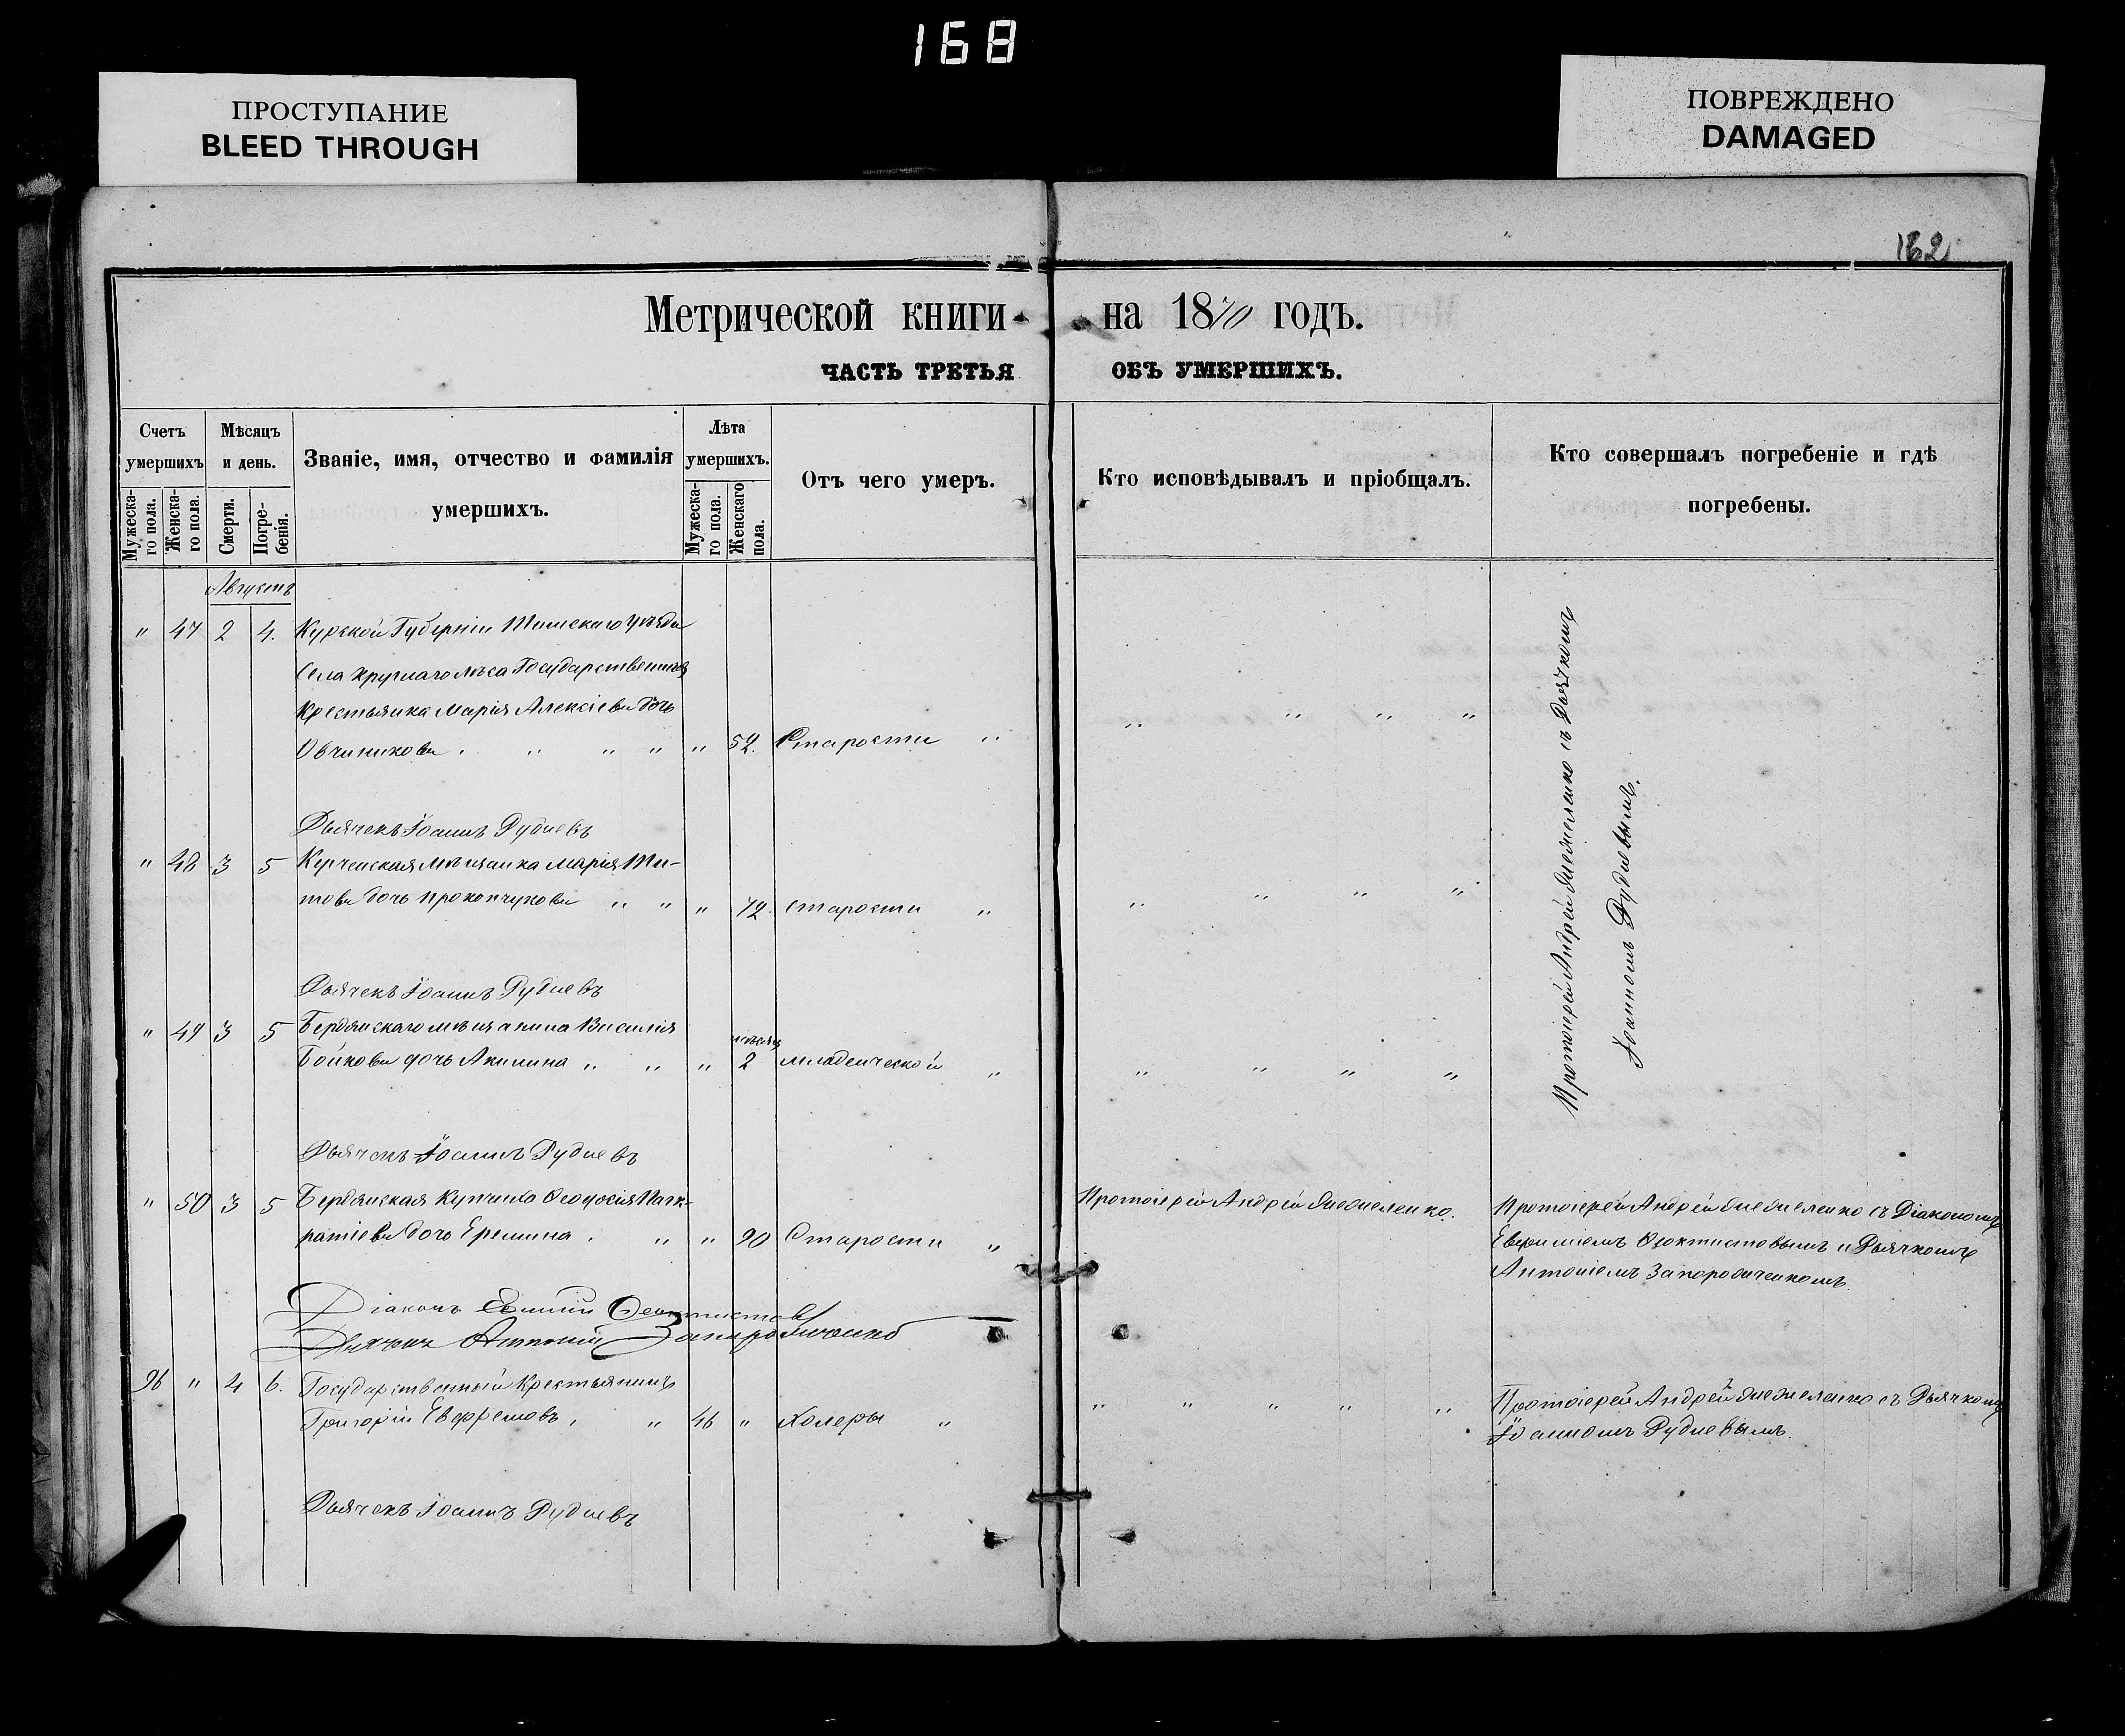 168
ПРОСТУПАНИЕ
BLEED THROUGH
ПОВРЕЖДЕНО
DAMAGED
162
Метрической книги на 1870 годъ.
ЧАСТЬ ТРЕТЬЯ ОБЪ УМЕРШИХЪ.
Счетъ умершихъ
Мужеска-го пола.
Женска-го пола.
Мѣсяцъ и день.
Смерти.
Погре-бенія.
Званіе, имя, отчество и фамилія умершихъ.
Лѣта умершихъ.
Мужеска-го пола.
Женскаго пола.
Отъ чего умеръ.
Кто исповѣдывалъ и пріобщалъ.
Кто совершалъ погребеніе и гдѣ погребены.
Августъ
" 47 2 4. Курской Губерніи Тимскаго уѣзда
Села Круглаго лѣса Государственная
Крестьянка Марія Алексіева дочь
Овчиникова " " " " 52. Старости "
" " " "
Протоіерей Андрей съ Дьячкомъ
Іоанномъ Рудневымъ.
Дьячекъ Іоаннъ Рудневъ
" 48 3 5 Керченская мѣщанка Марія Ти-
това дочь Прокопчукова " " " 72. старости "
" " " "
Дьячекъ Іоаннъ Рудневъ
" 49 3 5 Бердянскаго мѣщанина Василія
Бойкова дочь Акилина " " " мѣсяц 2 младенческой "
" " " "
Дьячекъ Іоаннъ Рудневъ
" 50 3 5 Бердянская Купчиха Ѳеодосія Панк-
ратіева дочь Еремина " " " 90 Старости "
Протоіерей Андрей
Протоіерей Андрей съ Діакономъ
Ѳеоктистовымъ и Дьячкомъ
Антоніемъ Запорожченкомъ.
Діаконъ Ѳеоктистовъ
Дьячекъ Антоній Запорожченко
96 " 4 6. Государственный Крестьянинъ
Григорій " 46 " Холеры "
" " " " "
Протоіерей Андрей съ Дьячкомъ
Іоанномъ Рудневымъ.
Дьячекъ Іоаннъ Рудневъ